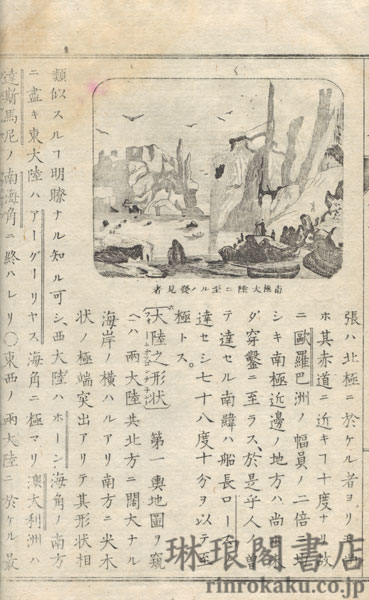 張ハ北極ニ於ケル者ヨリモ
ホ其赤道ニ近キヿ十度ナリ故
ニ歐羅巴洲幅員ノ二倍
シキ南極近邊ノ地方ハ尚
ダ穿鑿ニ至ラス、於是乎人ノ曽
テ達セル南緯ハ船長ロース
達セシ七十八度十分ヲ以テ至
極トス。
大陸之形状 第一輿地圖ヲ窺
ヘハ兩大陸共北方ニ闊大ナル
海岸ノ横ハルアリ南方ニ尖木
状ノ極端突出アリテ其形状相
南極大陸ニ至ルノ發見者
類似スルヿ明瞭ナル知ル可シ、西大陸ハホーン海角ノ南方
ニ盡キ東大陸ハアーグーリヤス海角ニ極マリ澳大利洲ハ
達斯馬尼ノ南海角ニ終ハレリ〇東西ノ兩大陸ニ於ケル最
琳琅閣書店
rinrokaku.co.jp